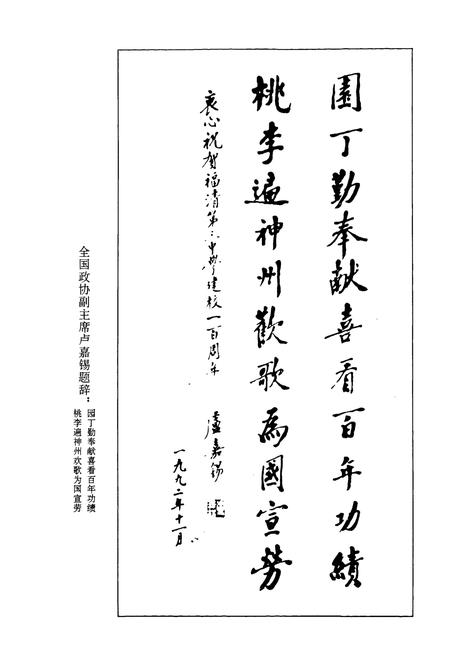 園丁勤奉献喜看百年功績
桃李遍神州歡歌為國宣劳
衷心祝贺福清第三中學建校一百周年
盧嘉锡
一九九二年十一月
全国政协副主席卢嘉锡题辞：
园丁勤奉献喜看百年功绩
桃李遍神州欢歌为国宣劳